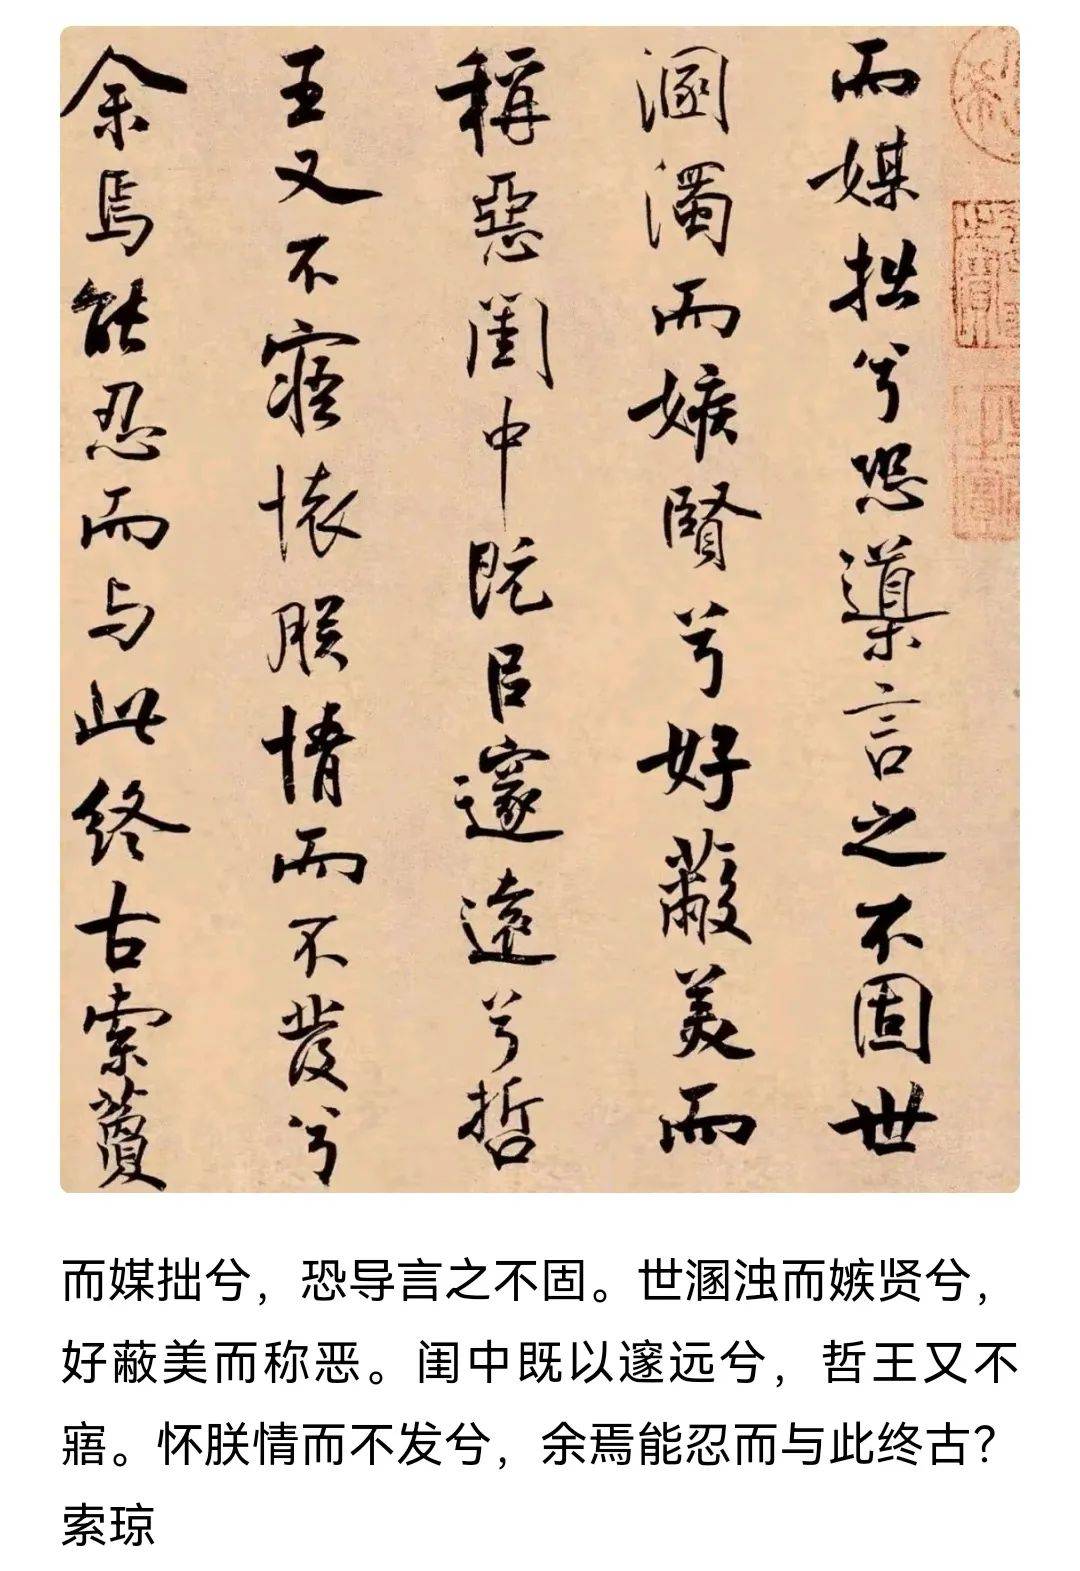 而媒拙兮恐導言之不固世
溷濁而嫉賢兮好蔽美而
稱惡閨中既㠯邃遠兮哲
王又不寤懷朕情而不發兮
余焉能忍而与此終古索藑
而媒拙兮，恐导言之不固。世溷浊而嫉贤兮，
好蔽美而称恶。闺中既以邃远兮，哲王又不
寤。怀朕情而不发兮，余焉能忍而与此终古？
索琼